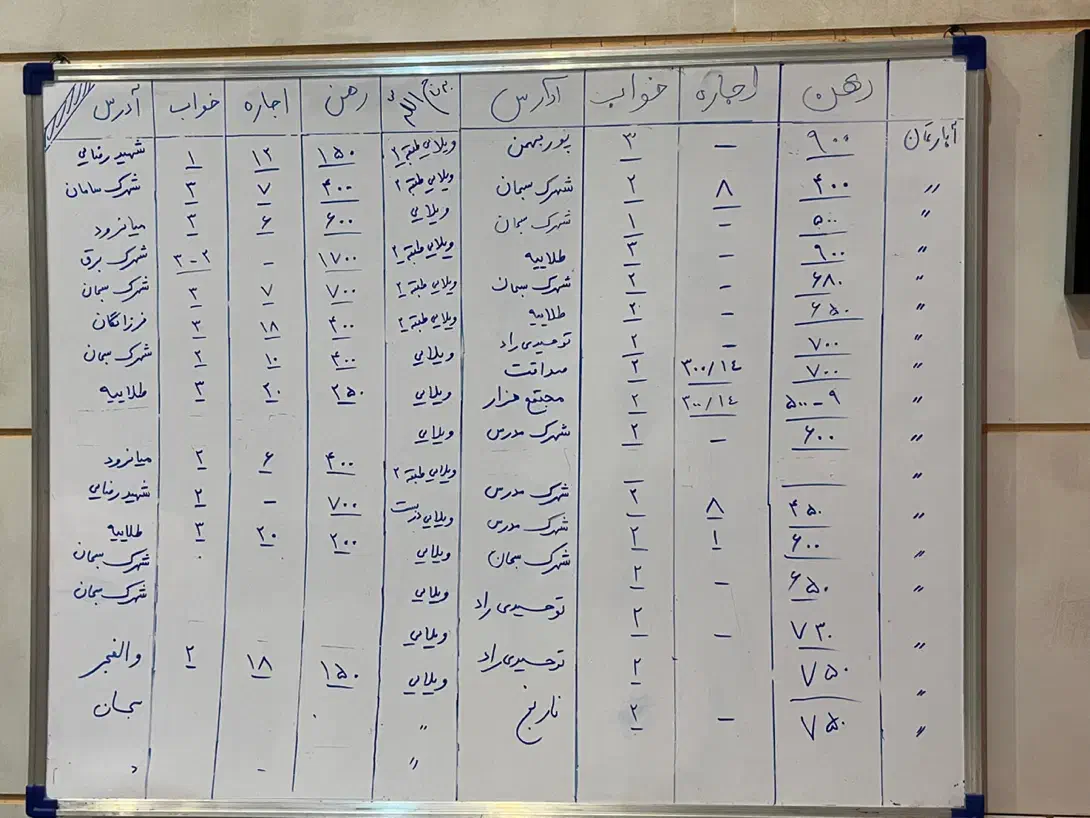 آپارتمان رهن اجاره خواب آدرس رهن اجاره خواب آدرس
۹۰۰ - ۳ پوربهمن ویلایی طبقه ۲ ۱۵۰ ۱۲ ۱ شهید رضایی
〃 ۴۰۰ ۸ ۲ شهرک سبحان ویلایی طبقه ۲ ۴۰۰ ۷ ۳ شهرک سامان
〃 ۵۰۰ - ۱ شهرک سبحان ویلایی ۶۰۰ ۶ ۳ میانرود
〃 ۹۰۰ - ۳ طلاییه ویلایی طبقه ۲ ۱۷۰۰ - ۳-۲ شهرک برق
〃 ۶۸۰ - ۲ شهرک سبحان ویلایی طبقه ۲ ۷۰۰ ۷ ۳ شهرک سبحان
〃 ۶۵۰ ۲ طلاییه ویلایی طبقه ۲ ۴۰۰ ۱۸ ۳ فرزانگان
〃 ۷۰۰ - ۲ توحیدی راد ویلایی ۴۰۰ ۱۰ ۲ شهرک سبحان
〃 ۷۰۰ ۳۰۰/۱۴ ۲ صداقت ویلایی ۲۵۰ ۲۰ ۳ طلاییه
〃 ۵۰۰-۹ ۲۰۰/۱۴ ۲ مجتمع هزار ویلایی
〃 ۶۰۰ - ۲ شهرک مدرس ویلایی طبقه ۲ ۴۰۰ ۶ ۲ میانرود
〃 ۴۵۰ ۸ ۲ شهرک مدرس ویلایی دربست ۷۰۰ - ۲ شهید رضایی
〃 ۶۰۰ ۱ ۲ شهرک مدرس ویلایی ۲۰۰ ۲۰ ۳ طلاییه
〃 ۶۵۰ - ۲ شهرک سبحان ویلایی شهرک سبحان
〃 ۷۳۰ - ۲ توحیدی راد ویلایی شهرک سبحان
〃 ۷۵۰ ۲ توحیدی راد ویلایی ۱۵۰ ۱۸ ۲ والفجر
〃 ۷۵۰ - ۲ نارنج 〃 سبحان
〃 -